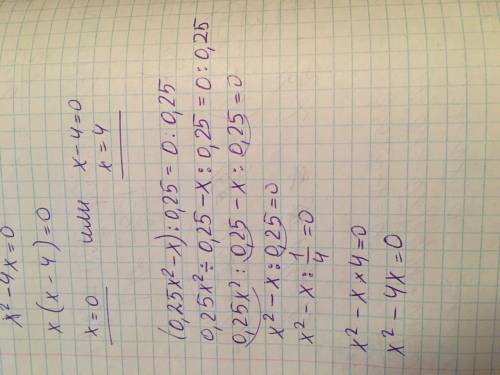 x² - 4x = 0
x(x - 4) = 0
x = 0 или x - 4 = 0
x = 4
(0,25x² - x) : 0,25 = 0 : 0,25
0,25x² : 0,25 - x : 0,25 = 0 : 0,25
0,25x² : 0,25 - x : 0,25 = 0
x² - x : 0,25 = 0
x² - x : 1/4 = 0
x² - x × 4 = 0
x² - 4x = 0